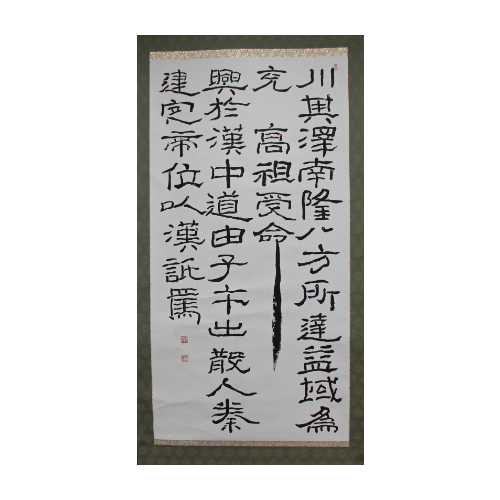 川其澤南隆八方所達益域為
充高祖受命
興於漢中道由子午出散入秦
建定帝位以漢詆焉